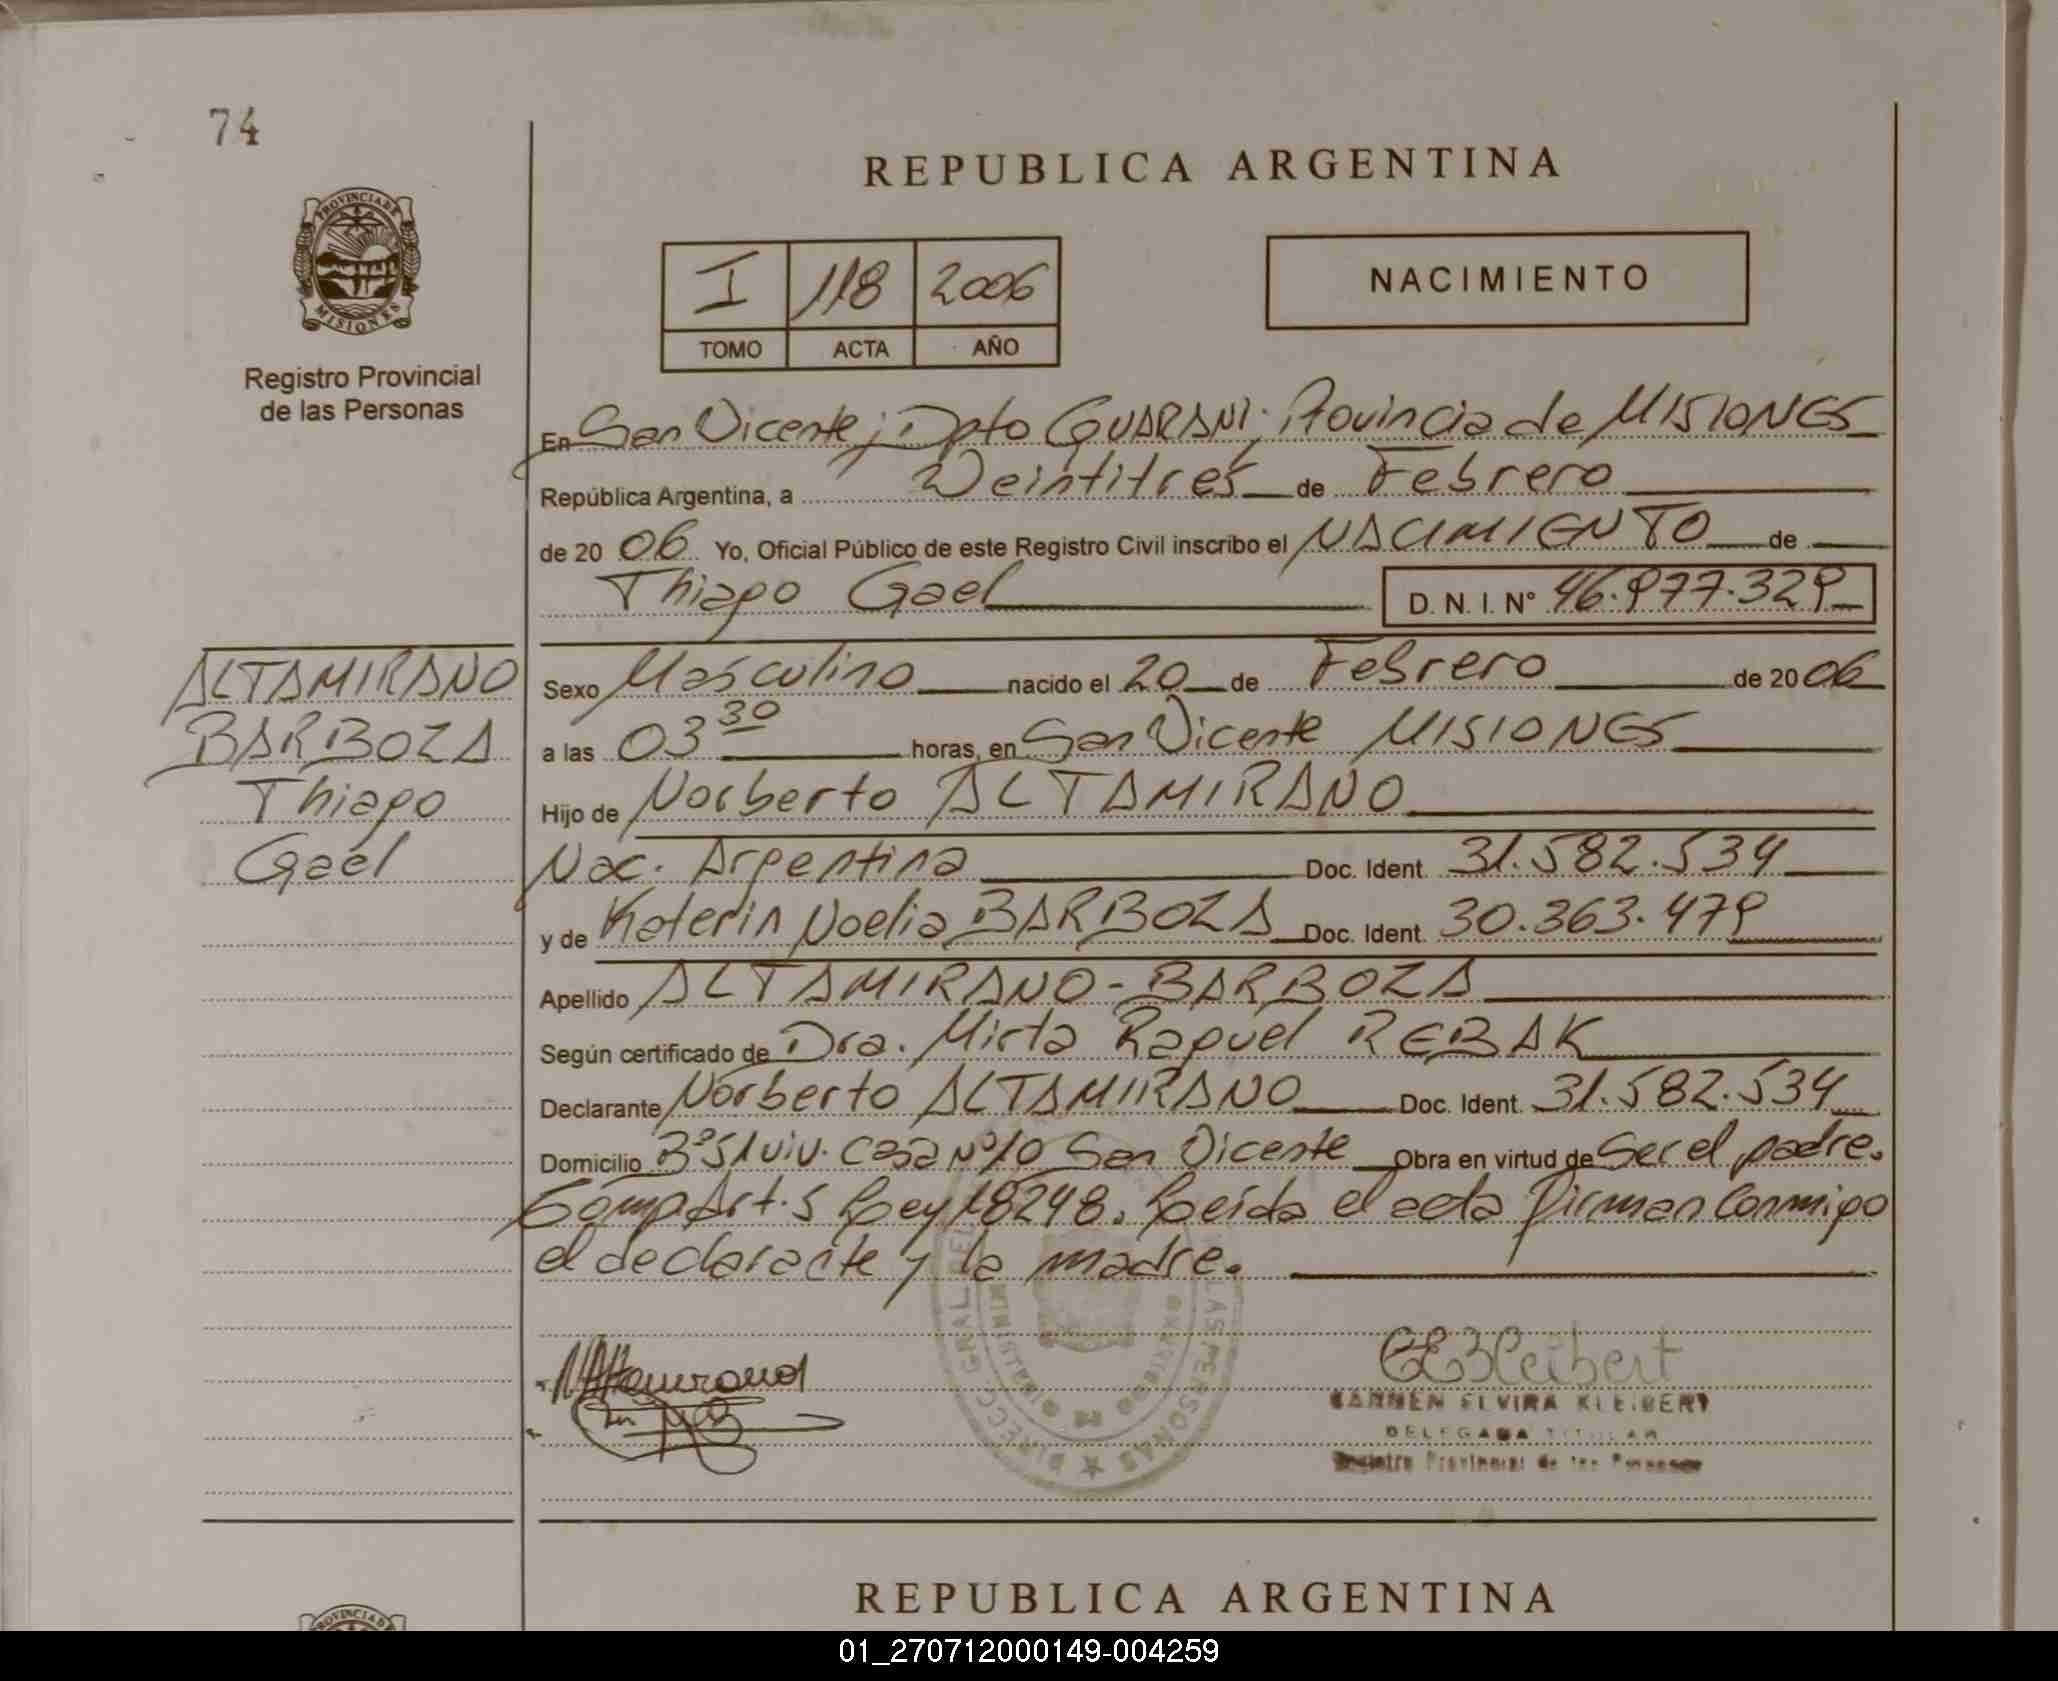 74
PROVINCIA DE
MISIONES
Registro Provincial
de las Personas
REPUBLICA ARGENTINA
I 118 2006
TOMO ACTA AÑO
NACIMIENTO
En San Vicente; Dpto GUARANI; Provincia de MISIONES
República Argentina, a Veintitres de Febrero
de 20 06 Yo, Oficial Público de este Registro Civil inscribo el NACIMIENTO de
Thiago Gael D. N. I. Nº 46.977.329
ALTAMIRANO
BARBOZA
Thiago
Gael
Sexo Masculino nacido el 20 de Febrero de 2006
a las 03 30 horas, en San Vicente MISIONES
Hijo de Norberto ALTAMIRANO
Nac. Argentina Doc. Ident. 31.582.534
y de Katerin Noelia BARBOZA Doc. Ident. 30.363.479
Apellido ALTAMIRANO-BARBOZA
Según certificado de Dra. Mirta Raquel REBAK
Declarante Norberto ALTAMIRANO Doc. Ident. 31.582.534
Domicilio Bº 51 viv. Casa Nº10 San Vicente Obra en virtud de Ser el padre.
Comp Art. 5 Ley 18248. Leída el acta firman Conmigo
el declarante y la madre.
CARMEN ELVIRA KLEIBERT
DELEGADA TITULAR
Registro Provincial de las Personas
REPUBLICA ARGENTINA
01_270712000149-004259